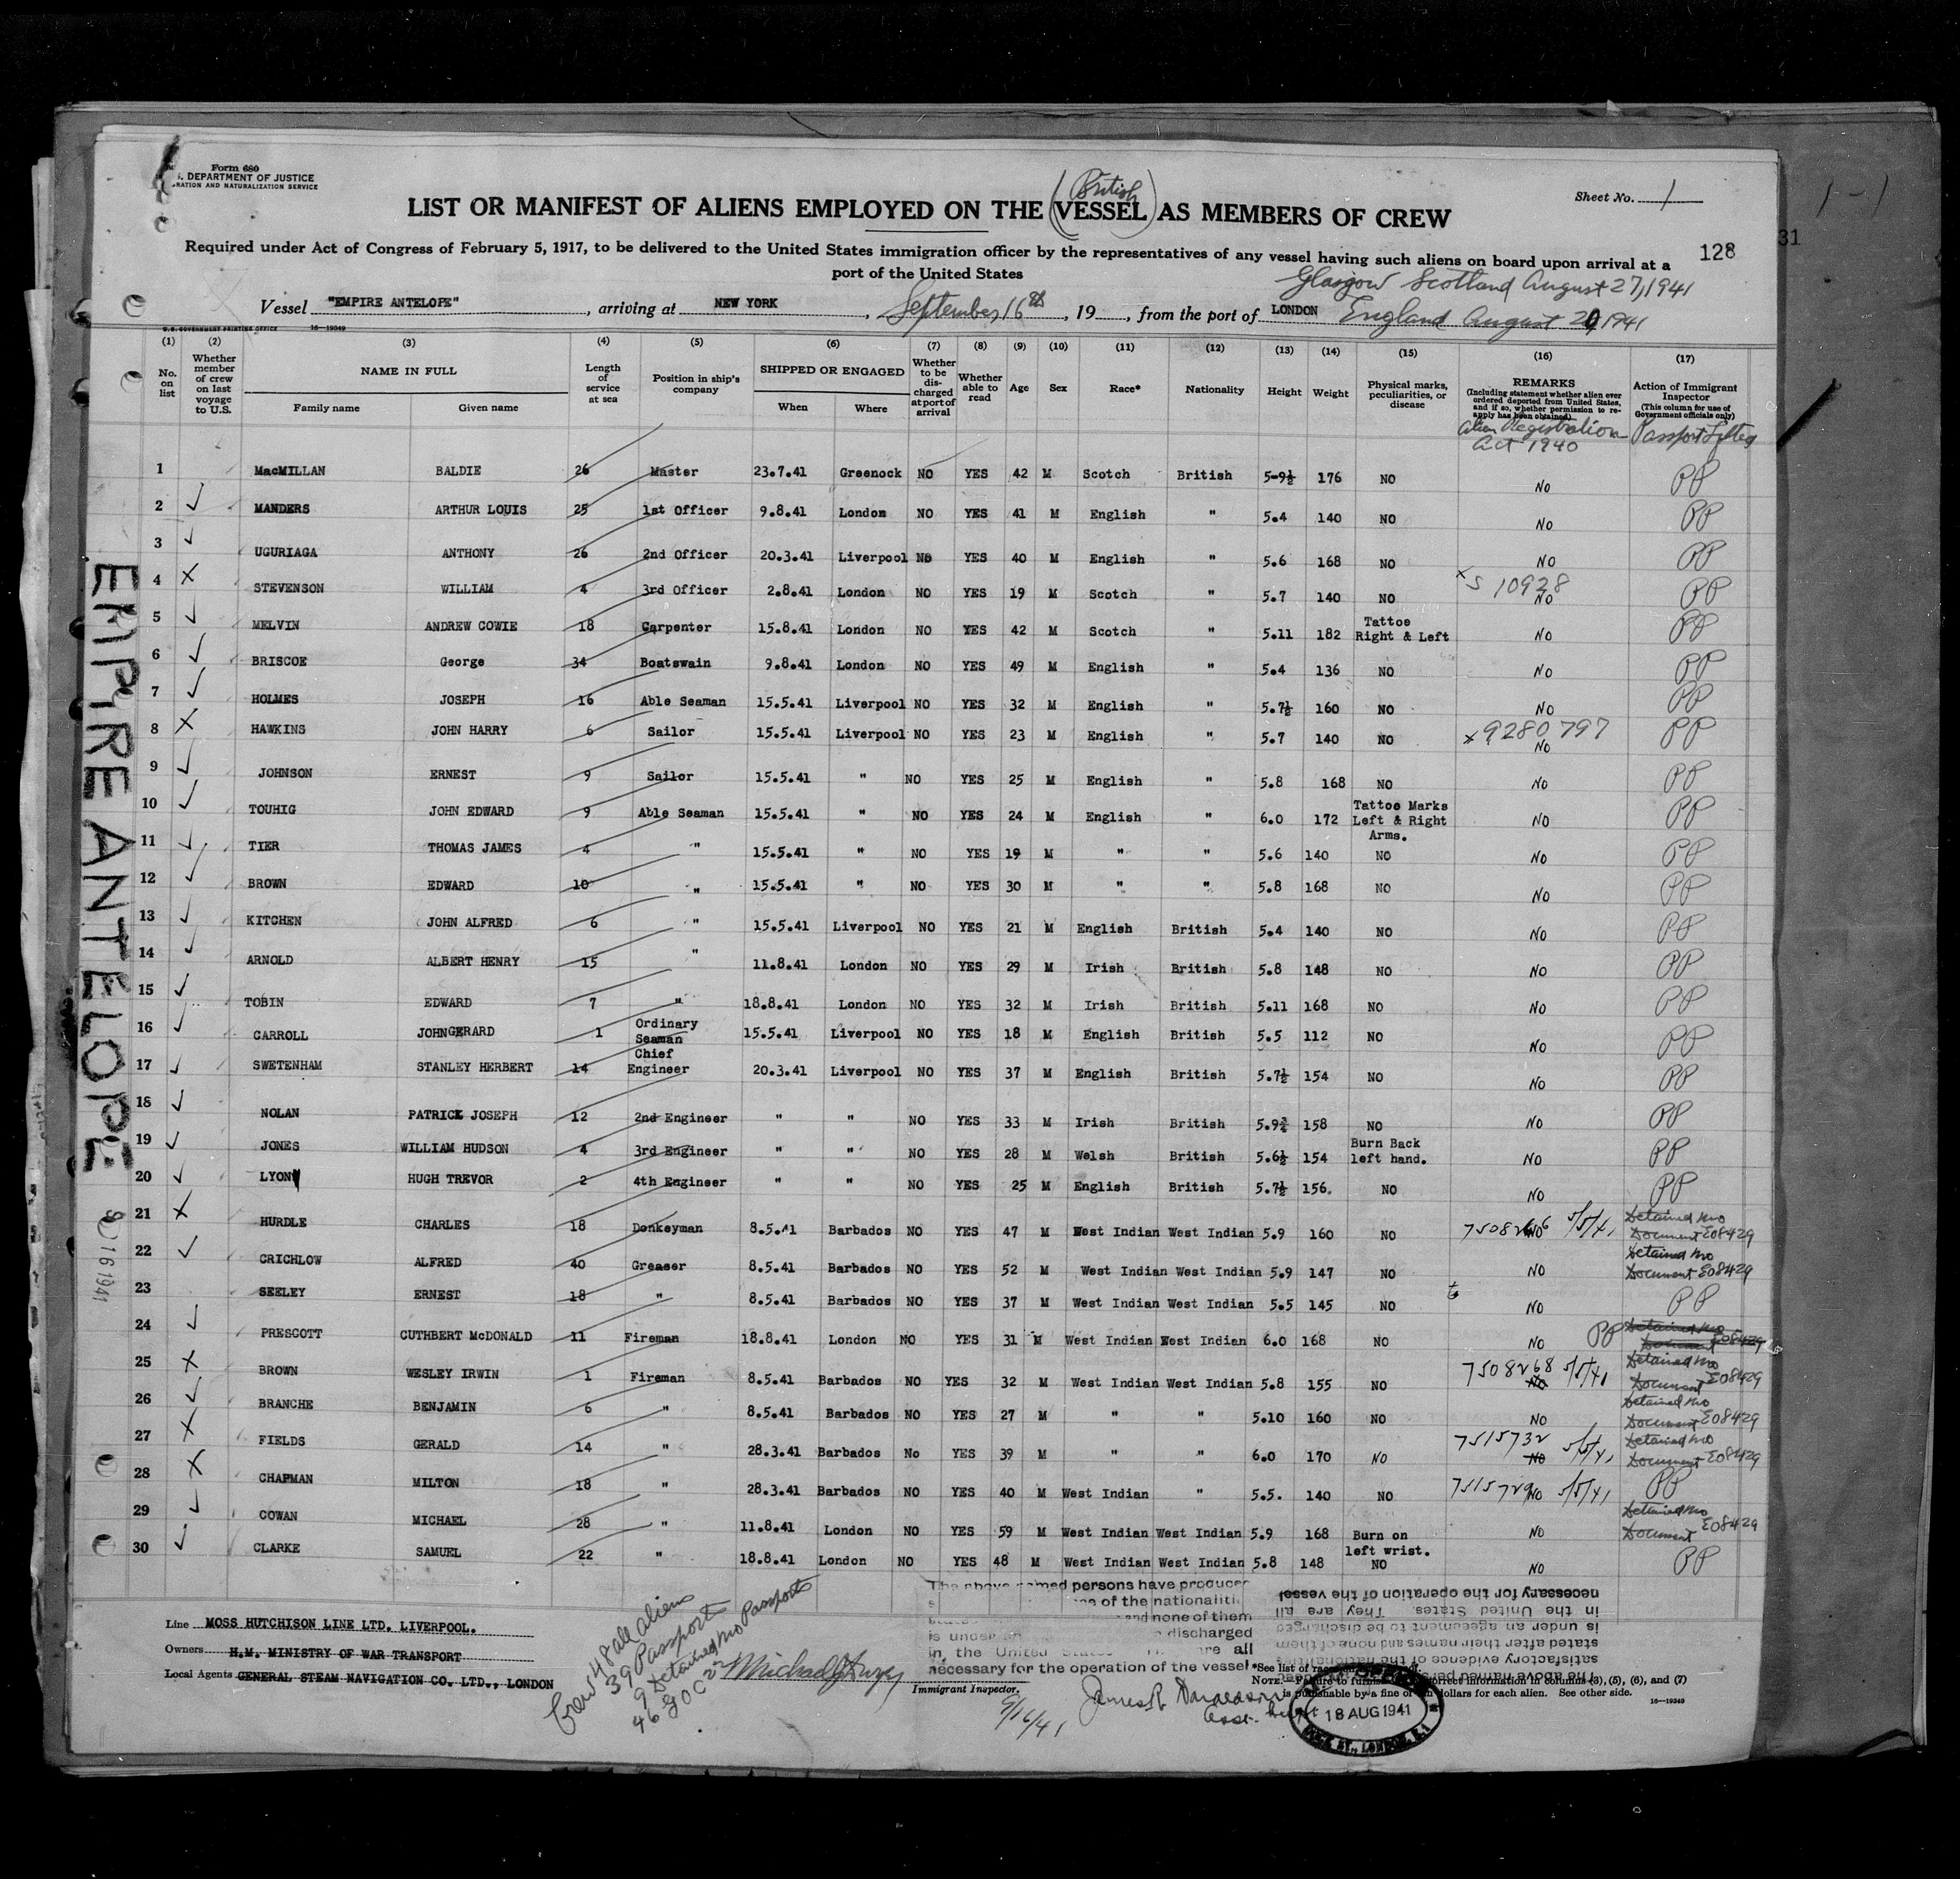 Form 680
. DEPARTMENT OF JUSTICE
RATION AND NATURALIZATION SERVICE
Sheet No. 1
1-1
(British)
LIST OR MANIFEST OF ALIENS EMPLOYED ON THE VESSEL AS MEMBERS OF CREW
Required under Act of Congress of February 5, 1917, to be delivered to the United States immigration officer by the representatives of any vessel having such aliens on board upon arrival at a
port of the United States
128
31
Glasgow Scotland August 27, 1941
Vessel "EMPIRE ANTELOPE", arriving at NEW YORK, September 16th, 19, from the port of LONDON England August 20, 1941
U.S. GOVERNMENT PRINTING OFFICE 16—19349
(1) No. on list
(2) Whether member of crew on last voyage to U.S.
(3) NAME IN FULL Family name Given name
(4) Length of service at sea
(5) Position in ship's company
(6) SHIPPED OR ENGAGED When Where
(7) Whether to be discharged at port of arrival
(8) Whether able to read
(9) Age
(10) Sex
(11) Race*
(12) Nationality
(13) Height
(14) Weight
(15) Physical marks, peculiarities, or disease
(16) REMARKS (Including statement whether alien ever ordered deported from United States, and if so, whether permission to reapply has been obtained)
Alien Registration Act 1940
(17) Action of Immigrant Inspector (This column for use of Government officials only)
Passport Lifted
1 MacMILLAN BALDIE 26 Master 23.7.41 Greenock NO YES 42 M Scotch British 5-9½ 176 NO NO PP
2 ✓ MANDERS ARTHUR LOUIS 25 1st Officer 9.8.41 London NO YES 41 M English " 5.4 140 NO NO PP
3 ✓ UGURIAGA ANTHONY 26 2nd Officer 20.3.41 Liverpool NO YES 40 M English " 5.6 168 NO NO PP
4 X STEVENSON WILLIAM 4 3rd Officer 2.8.41 London NO YES 19 M Scotch " 5.7 140 NO x S 10928 NO PP
5 ✓ MELVIN ANDREW COWIE 18 Carpenter 15.8.41 London NO YES 42 M Scotch " 5.11 182 Tattoe Right & Left NO PP
6 ✓ BRISCOE George 34 Boatswain 9.8.41 London NO YES 49 M English " 5.4 136 NO NO PP
7 ✓ HOLMES JOSEPH 16 Able Seaman 15.5.41 Liverpool NO YES 32 M English " 5.7½ 160 NO NO PP
8 X HAWKINS JOHN HARRY 6 Sailor 15.5.41 Liverpool NO YES 23 M English " 5.7 140 NO x 9280797 NO PP
9 ✓ JOHNSON ERNEST 9 Sailor 15.5.41 " NO YES 25 M English " 5.8 168 NO NO PP
10 ✓ TOUHIG JOHN EDWARD 9 Able Seaman 15.5.41 " NO YES 24 M English " 6.0 172 Tattoe Marks Left & Right Arms. NO PP
11 ✓ TIER THOMAS JAMES 4 " 15.5.41 " NO YES 19 M " " 5.6 140 NO NO PP
12 ✓ BROWN EDWARD 10 " 15.5.41 " NO YES 30 M " " 5.8 168 NO NO PP
13 ✓ KITCHEN JOHN ALFRED 6 " 15.5.41 Liverpool NO YES 21 M English British 5.4 140 NO NO PP
14 ✓ ARNOLD ALBERT HENRY 15 " 11.8.41 London NO YES 29 M Irish British 5.8 148 NO NO PP
15 ✓ TOBIN EDWARD 7 " 18.8.41 London NO YES 32 M Irish British 5.11 168 NO NO PP
16 ✓ CARROLL JOHN GERARD 1 Ordinary Seaman 15.5.41 Liverpool NO YES 18 M English British 5.5 112 NO NO PP
17 ✓ SWETENHAM STANLEY HERBERT 14 Chief Engineer 20.3.41 Liverpool NO YES 37 M English British 5.7½ 154 NO NO PP
18 ✓ NOLAN PATRICK JOSEPH 12 2nd Engineer " " NO YES 33 M Irish British 5.9¾ 158 NO NO PP
19 ✓ JONES WILLIAM HUDSON 4 3rd Engineer " " NO YES 28 M Welsh British 5.6½ 154 Burn Back left hand. NO PP
20 ✓ LYON HUGH TREVOR 2 4th Engineer " " NO YES 25 M English British 5.7½ 156. NO NO PP
21 X HURDLE CHARLES 18 Donkeyman 8.5.41 Barbados NO YES 47 M West Indian West Indian 5.9 160 NO NO 5/5/41 Detained No Document E08429
22 ✓ CRICHLOW ALFRED 40 Greaser 8.5.41 Barbados NO YES 52 M West Indian West Indian 5.9 147 NO NO Detained No Document E08429
23 SEELEY ERNEST 18 " 8.5.41 Barbados NO YES 37 M West Indian West Indian 5.5 145 NO NO PP
24 ✓ PRESCOTT CUTHBERT McDONALD 11 Fireman 18.8.41 London NO YES 31 M West Indian West Indian 6.0 168 NO NO PP Detained No Document E08429
25 X BROWN WESLEY IRWIN 1 Fireman 8.5.41 Barbados NO YES 32 M West Indian West Indian 5.8 155 NO 7508268 NO 5/5/41 Detained No Document E08429
26 ✓ BRANCHE BENJAMIN 6 " 8.5.41 Barbados NO YES 27 M " " 5.10 160 NO NO Detained No Document E08429
27 X FIELDS GERALD 14 " 28.3.41 Barbados No YES 39 M " " 6.0 170 NO 7515732 NO 5/5/41 Detained No Document E08429
28 X CHAPMAN MILTON 18 " 28.3.41 Barbados NO YES 40 M West Indian " 5.5. 140 NO 7515729 NO 5/5/41 PP
29 ✓ COWAN MICHAEL 28 " 11.8.41 London NO YES 59 M West Indian West Indian 5.9 168 Burn on left wrist. NO Detained No Document E08429
30 ✓ CLARKE SAMUEL 22 " 18.8.41 London NO YES 48 M West Indian West Indian 5.8 148 NO NO PP
EMPIRE ANTELOPE
9 16 1941
Line MOSS HUTCHISON LINE LTD. LIVERPOOL.
Owners H.M. MINISTRY OF WAR TRANSPORT
Local Agents GENERAL STEAM NAVIGATION CO. LTD., LONDON
Crew 48 all aliens
39 Passports
9 Detained No Passports
Immigrant Inspector.
9/16/41
The above named persons have produced
of the nationalities
and none of them
is under an discharged
in the United States are all
necessary for the operation of the vessel
The above named persons have produced
satisfactory evidence of the nationalities
stated after their names and none of them
is under an agreement to be discharged
in the United States. They are all
necessary for the operation of the vessel.
*See list of races
NOTE.—Failure to furnish correct information in columns (3), (5), (6), and (7)
is punishable by a fine of ten dollars for each alien. See other side.
16—19349
18 AUG 1941
LONDON, E.1